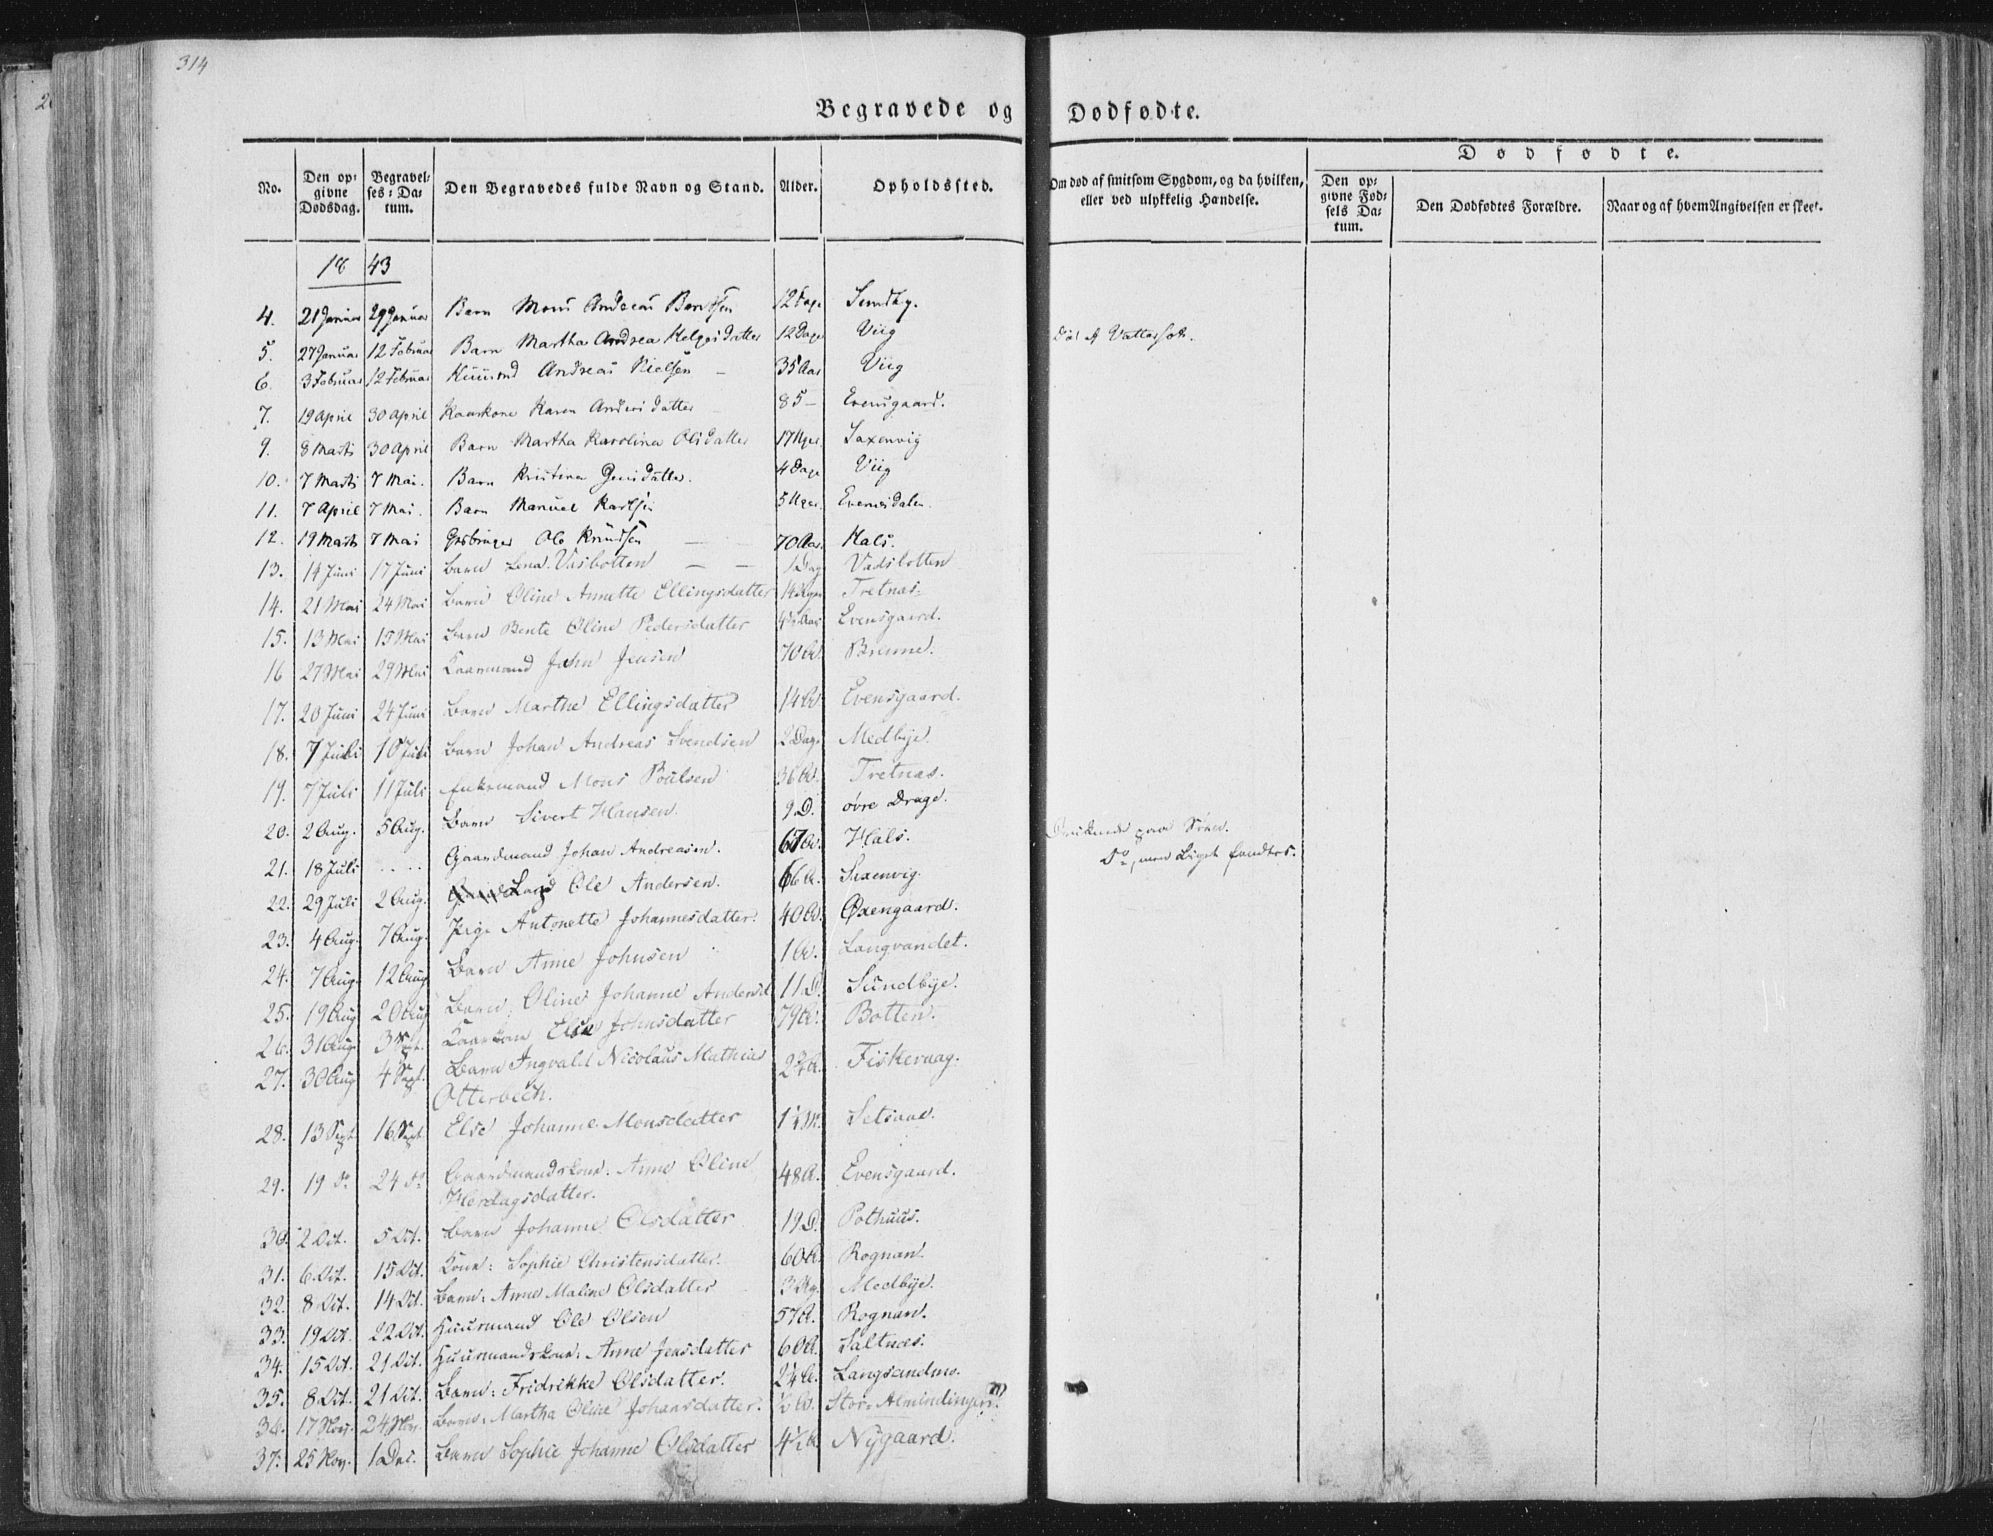 314
Begravede og Dødfødte.
No. Den opgivne Dødsdag. Begravelses-Datum. Den Begravedes fulde Navn og Stand. Alder. Opholdssted. Om død af smitsom Sygdom, og da hvilken, eller ved ulykkelig Hændelse. Dødfødte. Den opgivne Fødsels Datum. Den Dødfødtes Forældre. Naar og af hvem Angivelsen er skeet.
1843
4. 21 Januar 29 Januar Barn Mons Andreas Berntsen 12 Dage
5. 27 Januar 12 Februar Barn Martha Andrea Helgesdatter 12 Dage Viig
6. 3 Februar 12 Februar Huusmd Andreas Nielsen 35 Aar Viig
7. 19 April 30 April Kaarkone Karen Andersdatter 85 - Evensgaard.
9. 8 Marts 30 April Barn Martha Karolina Olsdatter 17 Uger Saxenvig
10. 7 Marts 7 Mai. Barn Kristina Jensdatter. 4 Dage Viig
11. 7 April 7 Mai. Barn Manuel Karlsen 5 Uger Evenesdalen.
12. 19 Marts 7 Mai Ole Knudsen 70 Aar. Hals.
13. 14 Juni 17 Juni Barn Lena Vasbotten 1 Dag Vadsbotten
14. 21 Mai 24 Mai Barn Oline Annette Ellingsdatter 14 Tretnæs.
15. 13 Mai 15 Mai Barn Bente Oline Pedersdatter Evensgaard.
16 27 Mai 29 Mai Kaarmand John Jensen 70 A. Brenne.
17. 20 Juni 24 Juni Barn Marthe Ellingsdatter 14 A. Evensgaard.
18. 7 Juli 10 Juli Barn Johan Andreas Svendsen 2 Dage Medbye.
19. 7 Juli 11 Juli Enkemand Mons Poulsen 36 A. Tretnæs.
20. 2 Aug. 5 Aug. Barn Sivert Hansen. 9 D. øvre Drage.
21. 18 Juli .... Gaardmand Johan Andreasen. 67 A. Hals. paa Søen.
22. 29 Juli 2 Aug. Ole Andersen. 66 A. Saxenvig. Do, men Liget fandtes.
23. 4 Aug. 7 Aug. Pige Antonette Johannesdatter. 40 A. Øxengaard.
24. 7 Aug. 12 Aug Barn Anne Johnsen 1 A. Langvandet.
25. 19 Aug 20 Aug Barn, Oline Johanne Andersd 11 D. Sundbye.
26. 31 Aug. 3 Sept. Kaarkone Else Johnsdatter 79 A. Botten.
27. 30 Aug 4 Sept. Barn Ingvald Nicolaus Mathias Fiskevaag.
Otterbech.
28. 13 Sept. 16 Sept. Else Johanne Monsdatter Setsaae.
29. 19 do 24 do Gaardmandskone: Anne Oline 48 A. Evensgaard.
Herdagsdatter.
30. 2 Oct. 5 Oct. Barn Johanne Olsdatter 19 D. Pothuus.
31. 6. Oct. 15 Oct. Kone: Sophie Christensdatter. 60 A. Rognan.
32. 8 Oct. 14 Oct. Barn: Anne Maline Olsdatter Medbye.
33. 19 Oct. 22 Oct. Huusmand Ole Olsen 57 A. Rognan.
34. 15 Oct. 21 Oct. Huusmandskone: Anne Jensdatter 60 A. Saltnæs.
35. 8 Oct. 21 Oct. Barn: Fridrikke Olsdatter. 2¼ A. Langsandmo.
36. 17 Nov. 24 Nov. Barn: Martha Oline Johansdatter. ½ A. Stor-Almindingen.
37. 25 Nov. 1 Dec. Barn Sophie Johanne Olsdatter 4½ A. Nygaard.